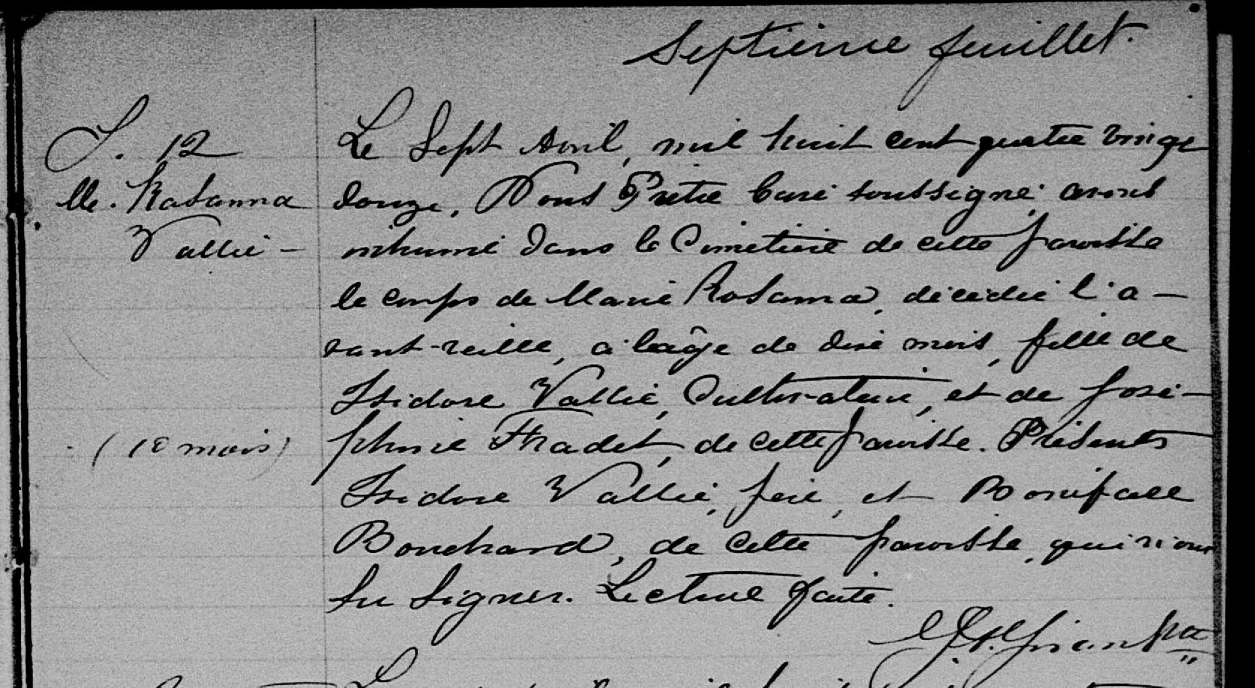 Septième feuillet.
S. 12
M. Rosanna
Vallié —
(10 mois)
Le Sept Avril, mil huit cent quatre vingt
douze, Nous Prêtre Curé soussigné, avons
inhumé dans le Cimetière de cette paroisse
le corps de Marie Rosanna, décédée l'a-
vant-veille, à l'âge de dix mois, fille de
Isidore Vallié, Cultivateur, et de José-
phine Fradet, de cette paroisse. Présents
Isidore Vallié, père, et Boniface
Bouchard, de cette paroisse, qui n'ont
su signer. Lecture faite.
Ptre